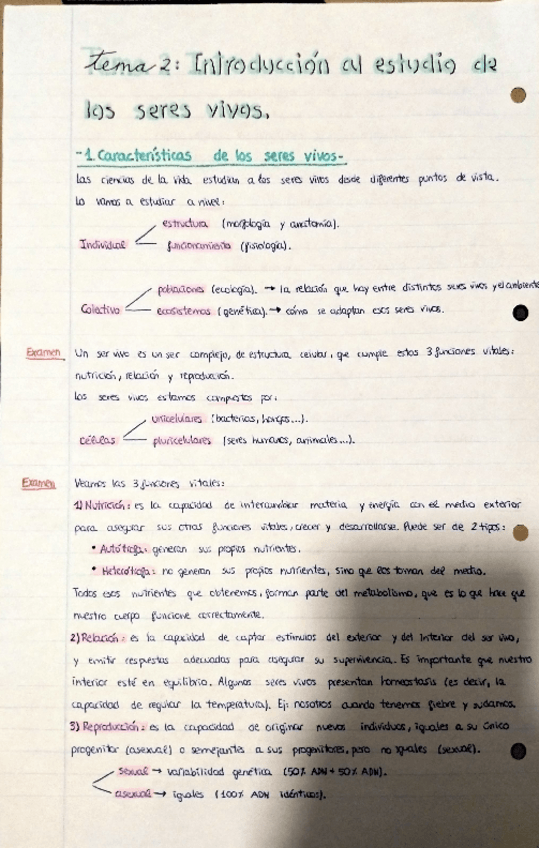 tema 2: Introducción al estudio de
los seres vivos.
-1. Características de los seres vivos-
Las ciencias de la vida estudian a los seres vivos desde diferentes puntos de vista.
Lo vamos a estudiar a nivel:
estructura (morfología y anatomía).
Individual
funcionamiento (fisiología).
poblaciones (ecología). → la relación que hay entre distintos seres vivos y el ambiente
Colectivo
ecosistemas (genética). → cómo se adaptan esos seres vivos.
Examen Un ser vivo es un ser complejo, de estructura celular, que cumple estas 3 funciones vitales:
nutrición, relación y reproducción.
Los seres vivos estamos compuestos por:
unicelulares (bacterias, hongos...).
células
pluricelulares (seres humanos, animales...).
Examen Veamos las 3 funciones vitales:
1) Nutrición: es la capacidad de intercambiar materia y energía con el medio exterior
para asegurar sus otras funciones vitales, crecer y desarrollarse. Puede ser de 2 tipos:
• Autótrofa: generan sus propios nutrientes.
• Heterótrofa: no generan sus propios nutrientes, sino que los toman del medio.
Todos esos nutrientes que obtenemos, forman parte del metabolismo, que es lo que hace que
nuestro cuerpo funcione correctamente.
2) Relación: es la capacidad de captar estímulos del exterior y del interior del ser vivo,
y emitir respuestas adecuadas para asegurar su supervivencia. Es importante que nuestro
interior esté en equilibrio. Algunos seres vivos presentan homeostasis (es decir, la
capacidad de regular la temperatura). Ej: nosotros cuando tenemos fiebre y sudamos.
3) Reproducción: es la capacidad de originar nuevos individuos, iguales a su único
progenitor (asexual) o semejantes a sus progenitores, pero no iguales (sexual).
sexual → variabilidad genética (50% ADN + 50% ADN).
asexual → iguales (100% ADN idénticos).